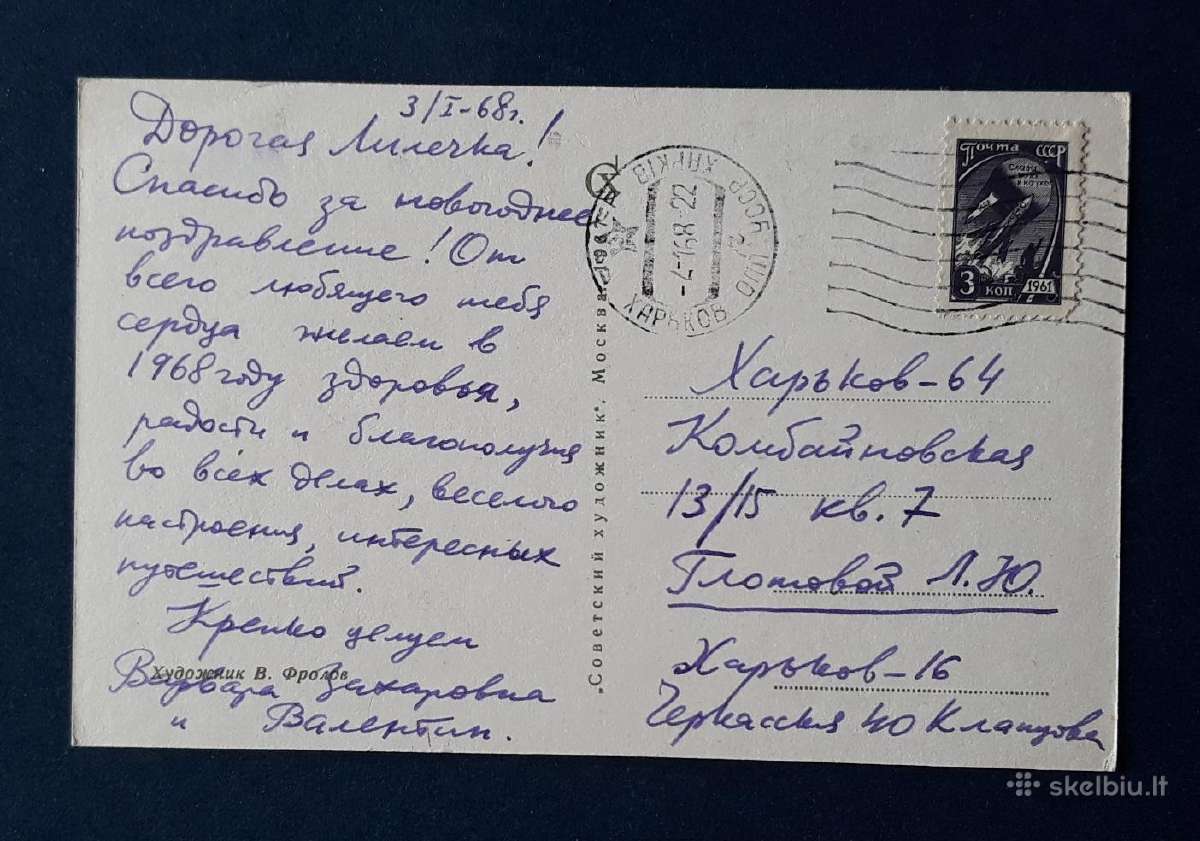 3/I-68г.
Дорогая Лилечка!
Спасибо за новогоднее
поздравление! От
всего любящего тебя
сердца желаем в
1968 году здоровья,
радости и благополучия
во всех делах, веселого
настроения, интересных
путешествий.
Крепко целуем
Художник В. Фролов
Варвара Захаровна
и Валентин.
"Советский художник". Москва. 1967
ХАРЬКОВ
-4-1 68-22
УССР ХАРКІВ
Почта СССР
Слава
науке
3 коп 1961
Харьков-64
Комбайновская
13/15 кв. 7
Глотовой Л.Ю.
Харьков-16
Черкасская 40
skelbiu.lt